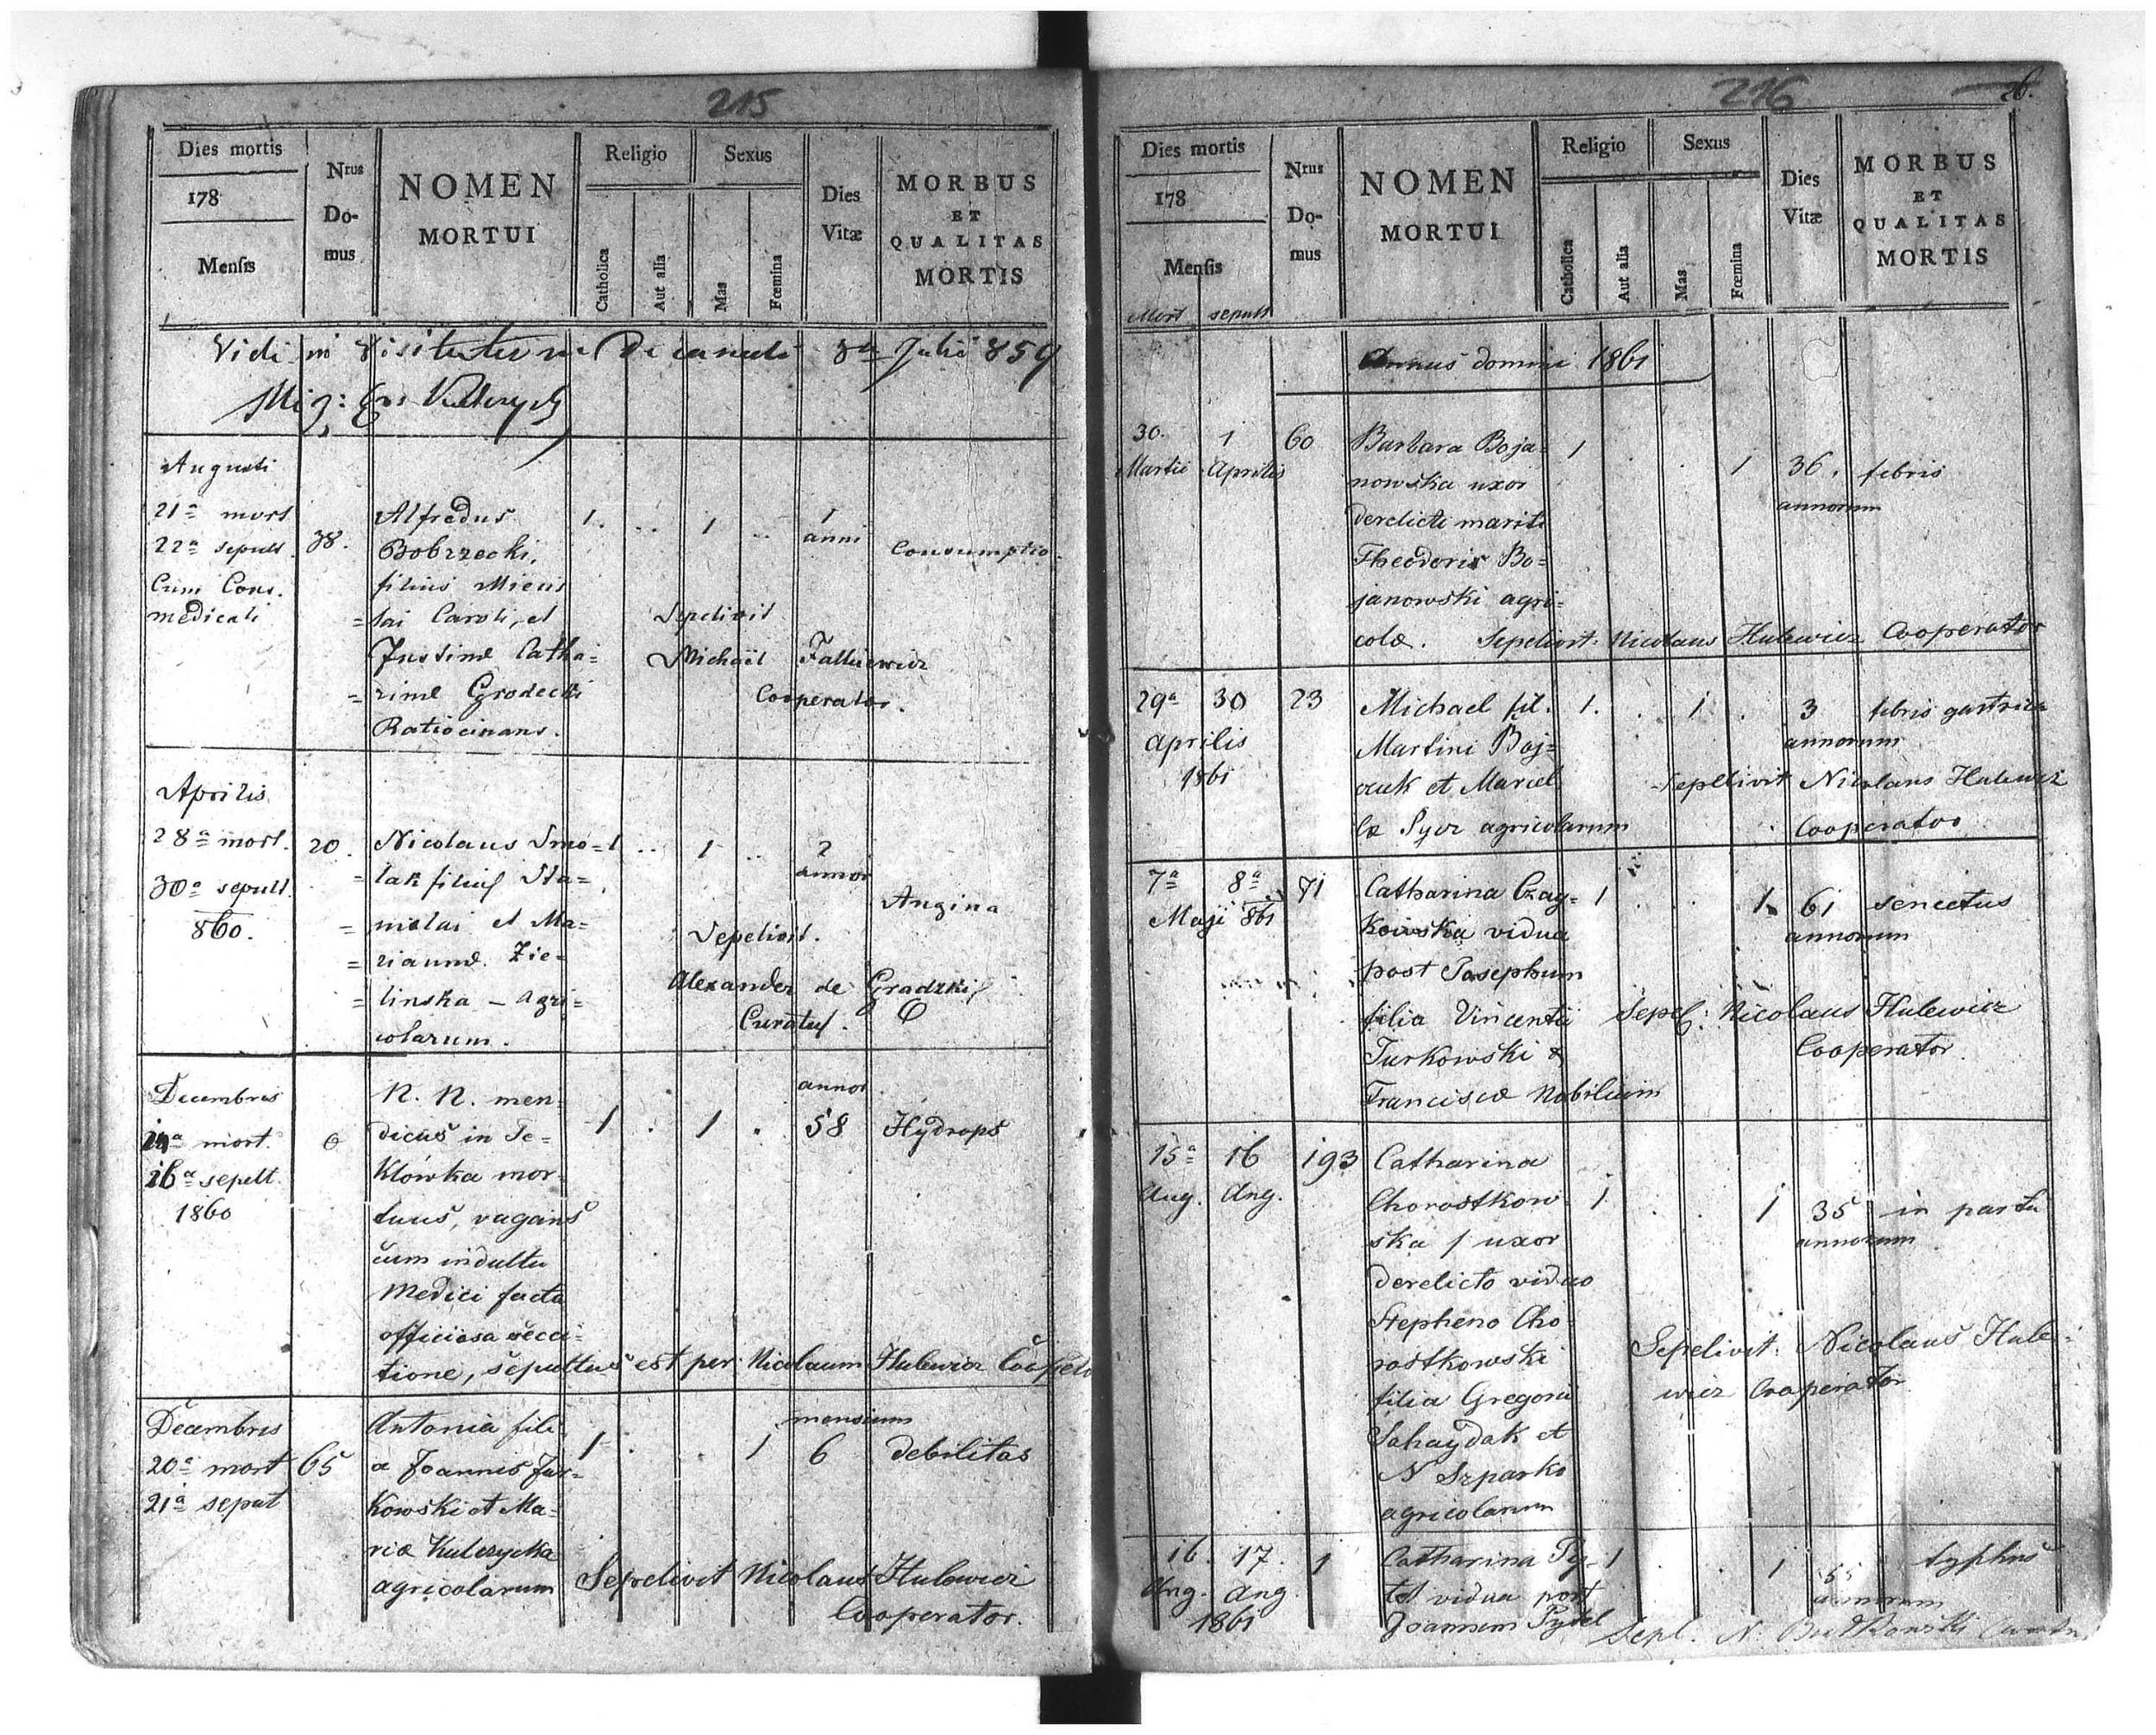 215
Dies mortis
178
Mensis
Nrus
Do-
mus
NOMEN
MORTUI
Religio
Catholica
Aut alia
Sexus
Mas
Fœmina
Dies
Vitæ
MORBUS
ET
QUALITAS
MORTIS
Vidi in Visitatione Decanali 8a Julii 859
Augusti
21a mort
22a sepult.
Cum Cons.
medicali
38.
Alfredus
Bobrzecki,
filius
=lai Caroli, et
Catha=
=rinæ Grodecki
Ratiocinans.
1. .. 1 ..
1
anni
Consumptio.
Sepelivit
Michaël Falkiewicz
Cooperator.
Aprilis
28a mort.
30a sepult.
860.
20.
Nicolaus Smo=
=lak filius Sta=
=nislai et Ma=
=riannæ Zie=
=linska – agri=
colarum.
1 .. 1 ..
2
annor
Angina
Sepelivit.
Alexander de Gradzki
Curatus.
Decembris
mort.
26a sepelt.
1860
0
N. N. men=
dicus in Te=
klówka mor=
tuus, vagans
cum indultu
Medici facta
officiosa secci=
tione, sepultus est per Nicolaum Hulewicz
1 . 1 .
annor.
58
Hydrops
Decembris
20a mort
21a sepult
65
Antonia fili=
a Joannis Jur=
kowski et Ma=
riæ Kulczycka
agricolarum
1 . . 1
mensium
6
debilitas
Sepelivit Nicolaus Hulewicz
Cooperator.
216
26.
Dies mortis
178
Mensis
Mort sepult
Nrus
Do-
mus
NOMEN
MORTUI
Religio
Catholica
Aut alia
Sexus
Mas
Fœmina
Dies
Vitæ
MORBUS
ET
QUALITAS
MORTIS
Annus domini 1861
30. 1
Martii Aprilis
60
Barbara Boja=
nowska uxor
derelicti mariti
Theodoris Bo=
janowski agri=
colæ. Sepelivit: Nicolaus Hulewicz Cooperator
1 . . 1
36.
annorum
febris
29a 30
Aprilis
1861
23
Michael fil.
Martini Boj=
czuk et Marcel
læ Sycz agricolarum
1. . 1 .
3
annorum
febris gastrica
Sepelivit Nicolaus Hulewicz
Cooperator
7a 8a
Maji 861
71
Catharina Czay=
kowska vidua
post Josephum
filia Vincentii
Turkowski &
Franciscæ Nobilium
1 . . 1.
61
annorum
senectus
Sepel: Nicolaus Hulewicz
Cooperator.
15a 16
Aug. Aug.
193
Catharina
Chorostkow=
ska / uxor
derelicto viduo
Stephano Cho=
rostkowski
filia Gregorii
Sahaydak et
N Szparko
agricolarum
1 . . 1
35
annorum
in partu
Sepelivit: Nicolaus Hule=
wicz Cooperator
16. 17.
Aug. Aug.
1861
1
Catharina Py=
tel vidua post
Joannem Pytel
1 . . 1
55
annorum
typhus
Sepl. N. Butkowski